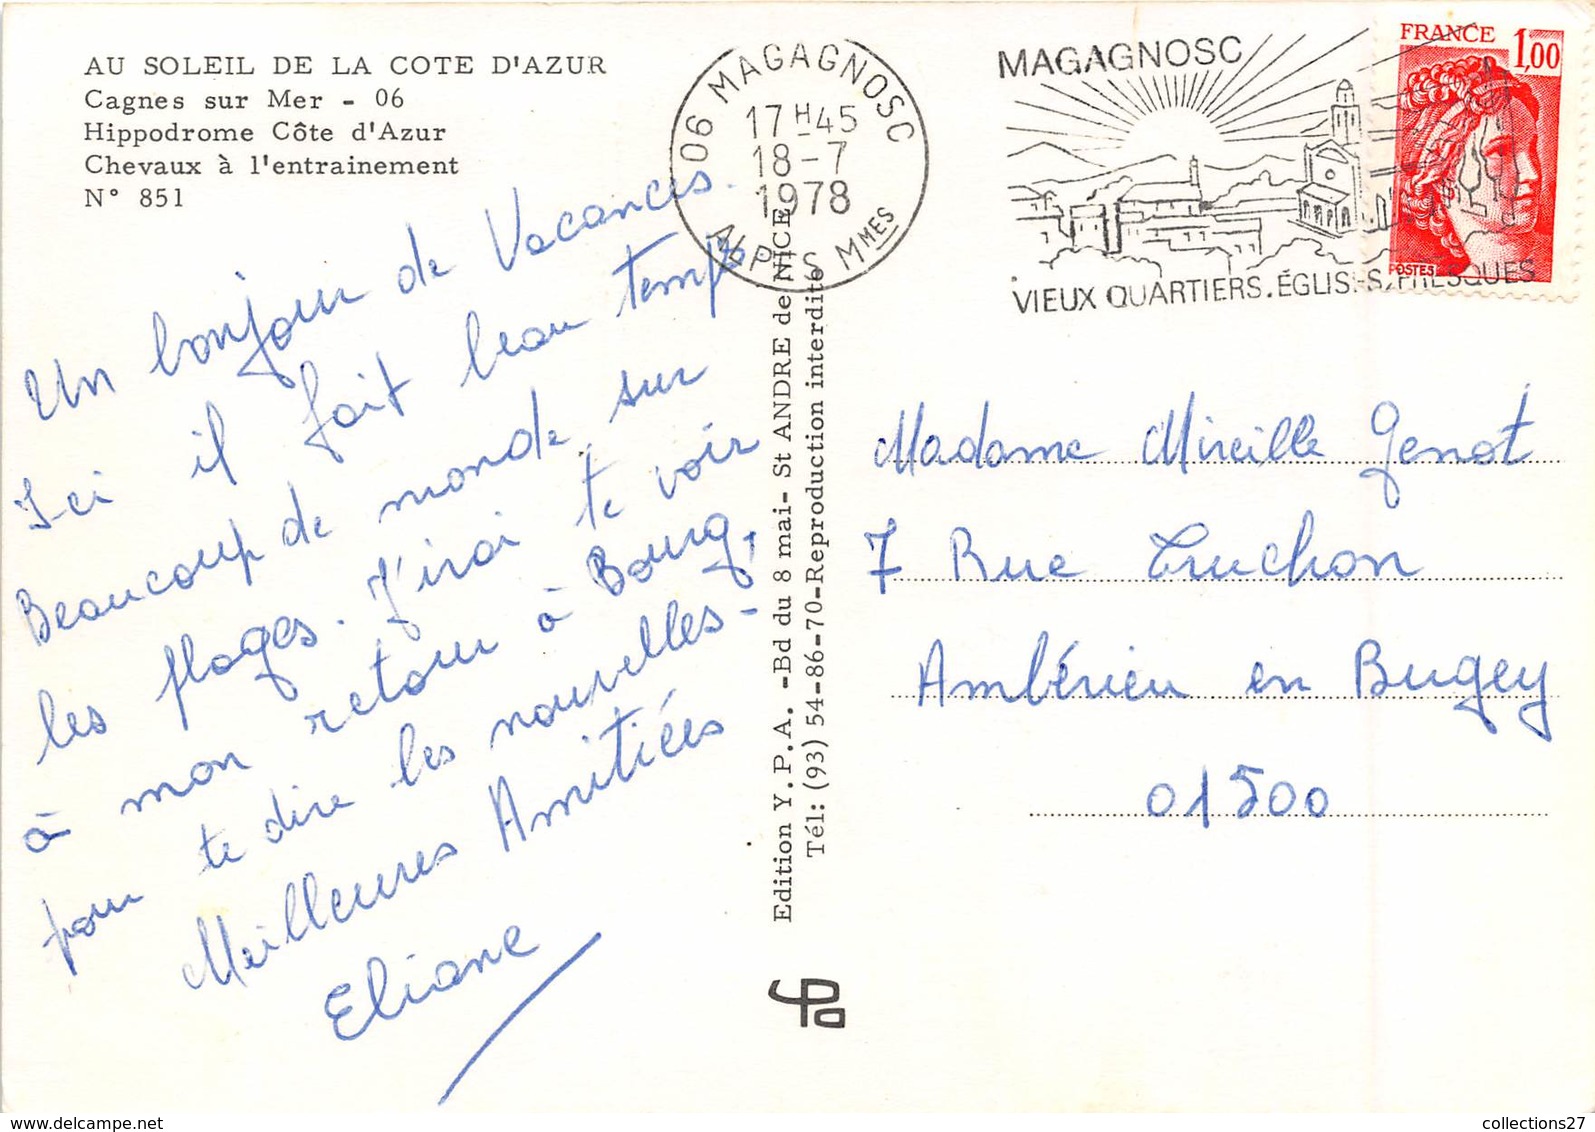 AU SOLEIL DE LA COTE D'AZUR
Cagnes sur Mer - 06
Hippodrome Côte d'Azur
Chevaux à l'entrainement
N° 851
Un bonjour de Vacances.
Ici il fait beau temps
Beaucoup de monde sur
les plages. J'irai te voir
à mon retour à Bourg,
pour te dire les nouvelles-
Meilleures Amitiées
Eliane
Edition Y.P.A. -Bd du 8 mai- St ANDRE de NICE
Tél: (93) 54-86-70-Reproduction interdite
06 MAGAGNOSC
17H45
18-7
1978
ALPES MMES
MAGAGNOSC
VIEUX QUARTIERS.ÉGLISES,FRESQUES
FRANCE 1,00
POSTES
Madame Mireille Genot
7 Rue Luchon
Ambérieu en Bugey
01500
collections27